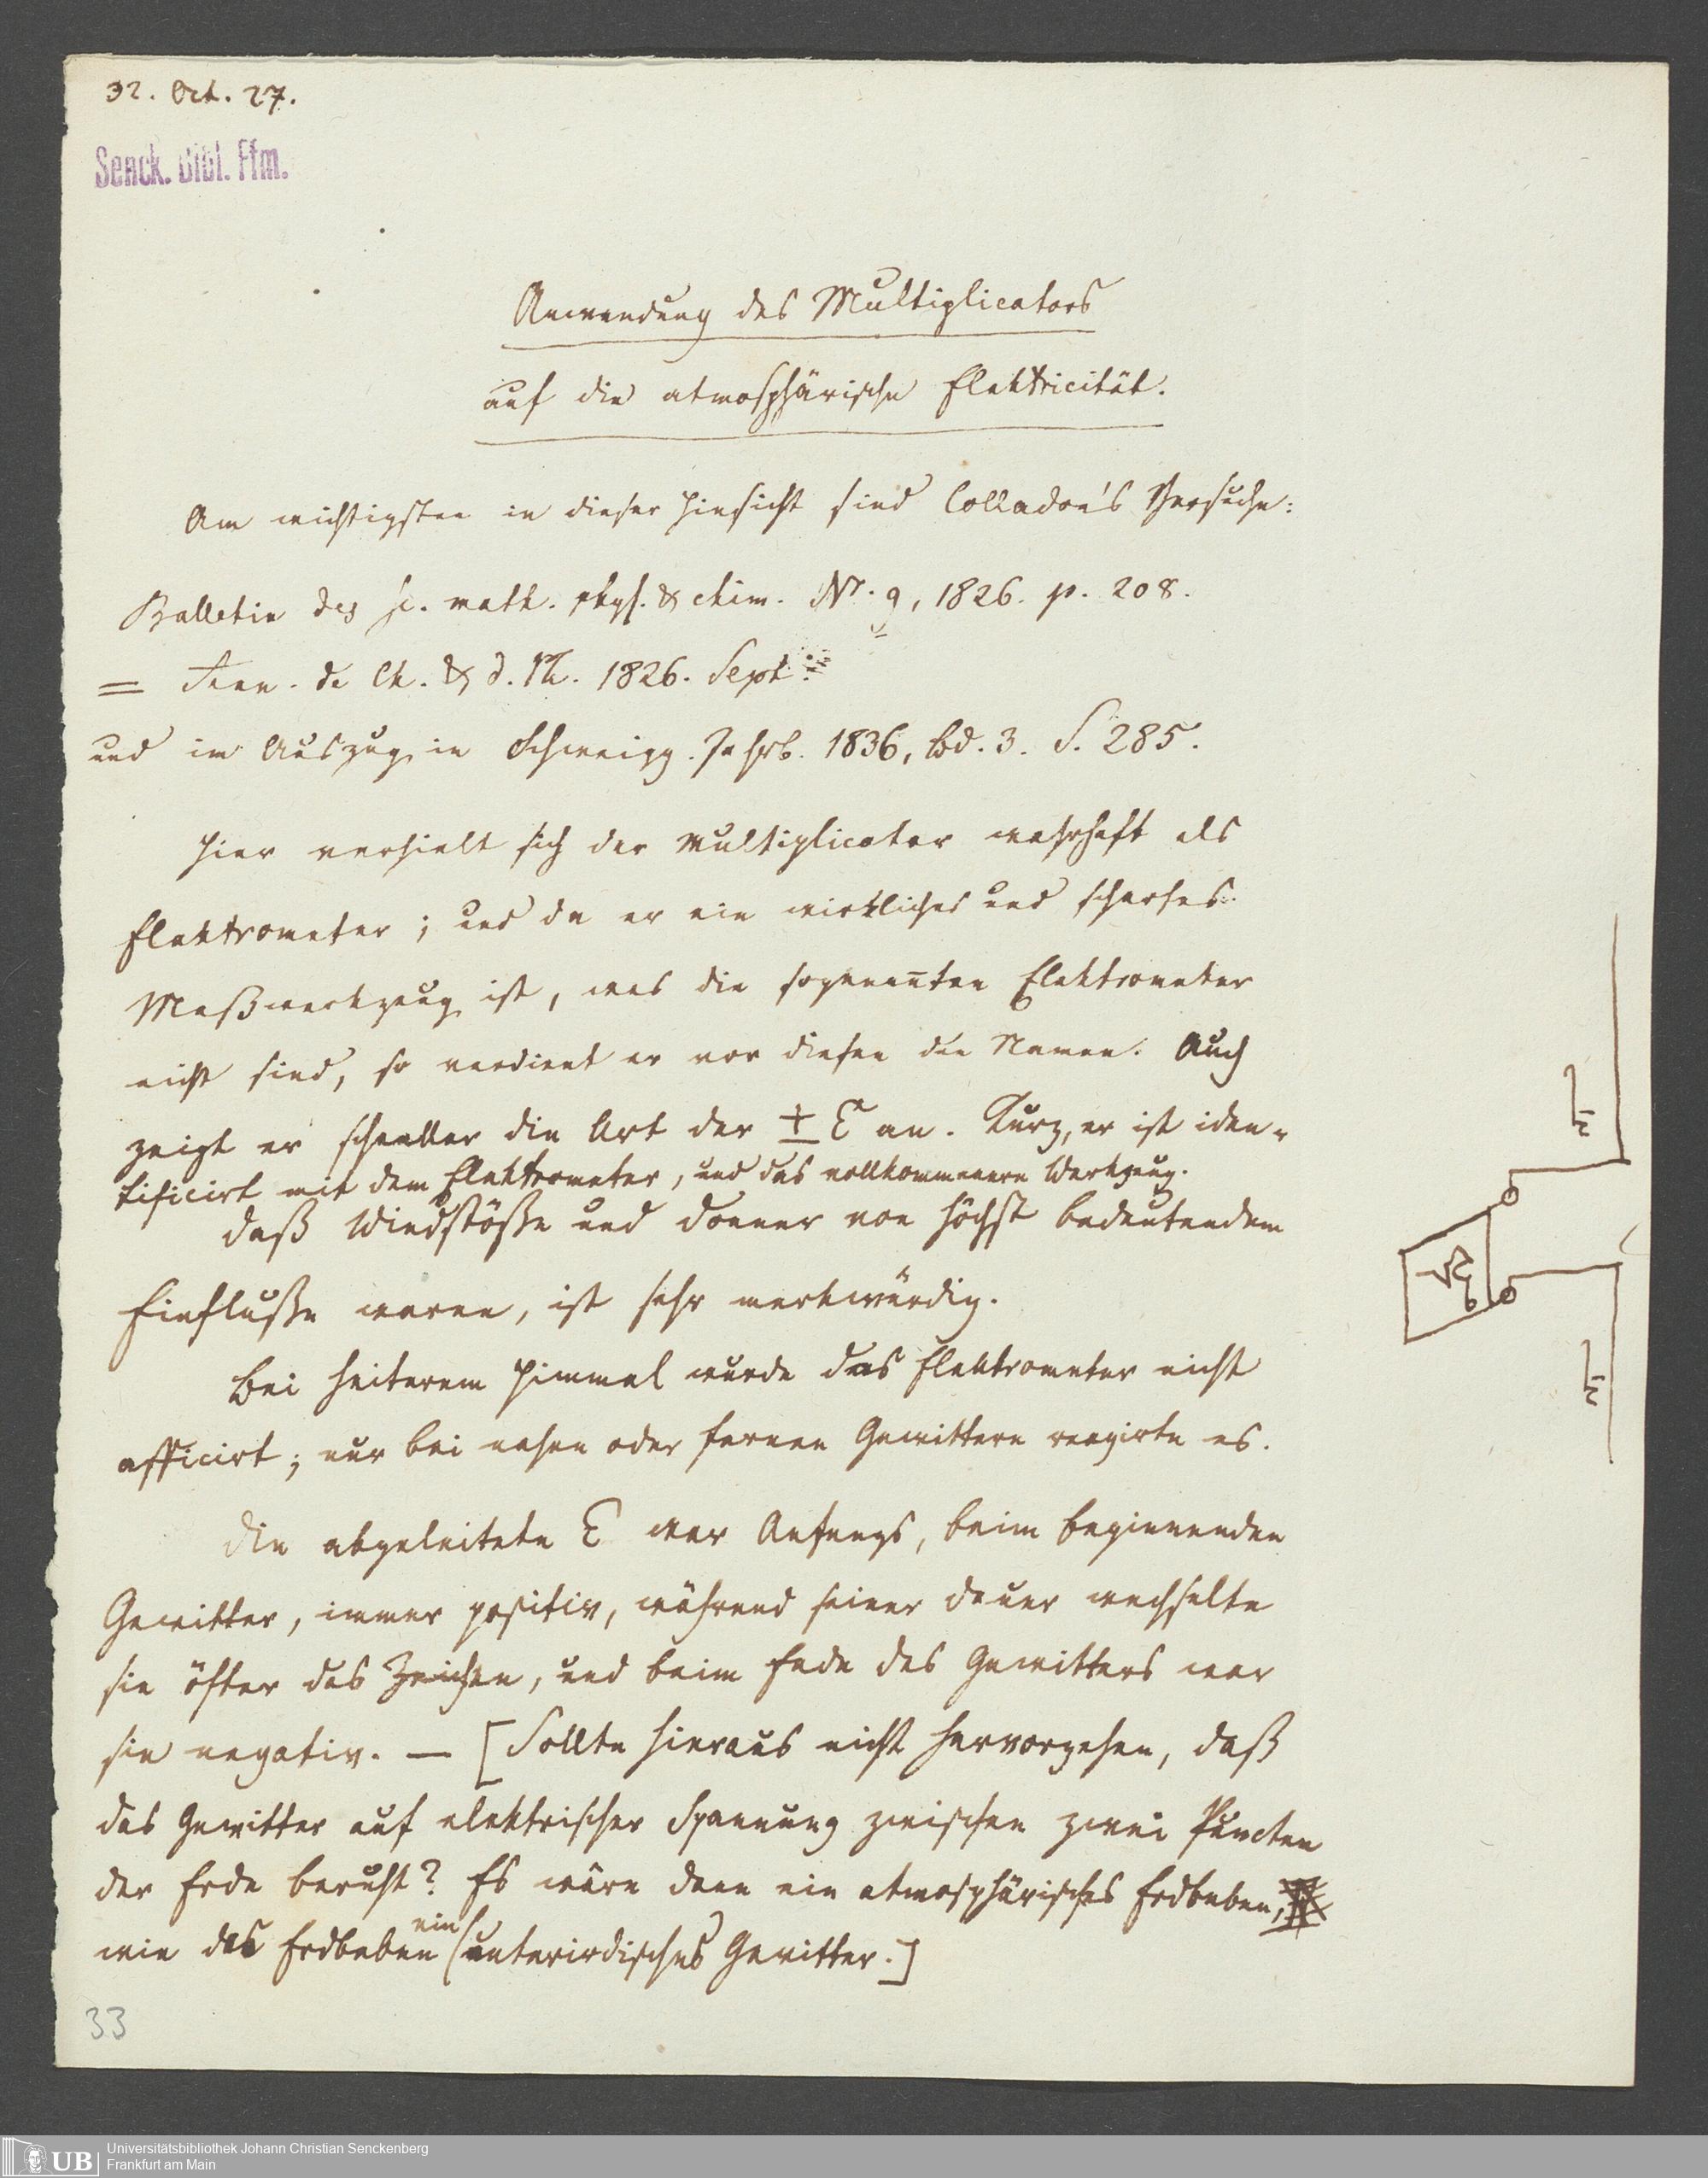 32. Oct. 27.
Senck. Bibl. Ffm.
Anwendung des Multiplicators
auf die atmosphärische Elektricität.
Am wichtigsten in dieser Hinsicht sind Colladon's Versuche:
Bulletin des sc. math. phys. & chim. Nr. 9, 1826. p. 208.
= Ann. de Ch. & d. Ph. 1826. Sept.
und im Auszug in Schweigg. Jahrb. 1836, Bd. 3. S. 285.
Hier verhielt sich der Multiplicator wahrhaft als
Elektrometer; und da er ein wirkliches und scharfes
Meßwerkzeug ist, was die sogenan̅ten Elektrometer
nicht sind, so verdient er vor diesen den Namen. Auch
zeigt er schneller die Art der ± E an. Kurz, er ist iden-
tificirt mit dem Elektrometer, und das vollkommenere Werkzeug.
Daß Windstöße und Donner von höchst bedeutendem
Einflusse waren, ist sehr merkwürdig.
Bei heiterem Himmel wurde das Elektrometer nicht
afficirt; nur bei nahen oder fernen Gewittern reagirte es.
Die abgeleitete E war Anfangs, beim beginnenden
Gewitter, immer positiv, während seiner Dauer wechselte
sie öfter das Zeichen, und beim Ende des Gewitters war
sie negativ. — [Sollte hieraus nicht hervorgehen, daß
das Gewitter auf elektrischer Spannung zwischen zwei Puncten
der Erde beruht? Es wäre dann ein atmosphärisches Erdbeben,
wie das Erdbeben ein unterirdisches Gewitter.]
33
UB
Universitätsbibliothek Johann Christian Senckenberg
Frankfurt am Main